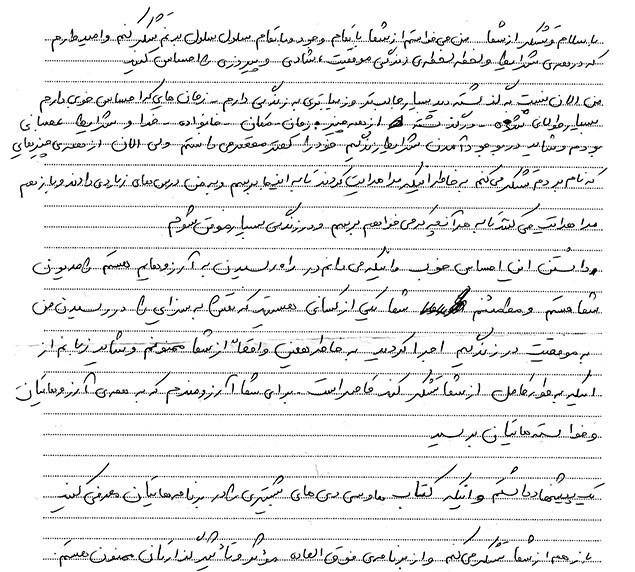 با سلام و تشکر از شما من می‌خواستم از شما با تمام وجودم با تمام سلول سلول بدنم تشکر کنم و امیدوارم
که در همه‌ی شرایط و لحظه لحظه‌ی زندگی موفقیت، شادی و پیروزی را احساس کنید
من الان نسبت به گذشته دید بسیار جالب‌تر و زیباتری به زندگی دارم - زمان‌هایی که احساس خوبی دارم
بسیار طولانی شده - در گذشته از همه چیز - زمان - مکان - خانواده - خدا و شرایط عصبانی
بودم و شاید در بوجود آمدن شرایط زندگیم خود را کمتر مقصر می‌دانستم ولی الان از همه‌ی چیزهایی
که نام بردم تشکر می‌کنم به خاطر اینکه مرا هدایت کردند تا به اینجا برسم و به من درس‌های زیادی دادند و باز هم
مرا هدایت می‌کنند تا به هر آنچه که می‌خواهم برسم و در زندگی بسیار موفق شوم
داشتن این احساس خوب و اینکه می‌دانم در راه رسیدن به آرزوهایم هستم را مدیون
شما هستم و مطمئنم شما یکی از کسانی هستید که نقش به سزایی را در رسیدن من
به موفقیت در زندگیم اجرا کردید به خاطر همین واقعاً از شما ممنونم و شاید زبانم از
اینکه به طور کامل از شما تشکر کند قاصر است. برای شما آرزومندم که به همه‌ی آرزوهایتان
و خواسته‌هایتان برسید
یک پیشنهاد داشتم و اینکه کتاب‌ها و سی دی‌های بیشتری را در برنامه‌هایتان معرفی کنید
باز هم از شما تشکر می‌کنم و از برنامه‌ی فوق العاده مؤثر و تأثیرگذارتان ممنون هستم.